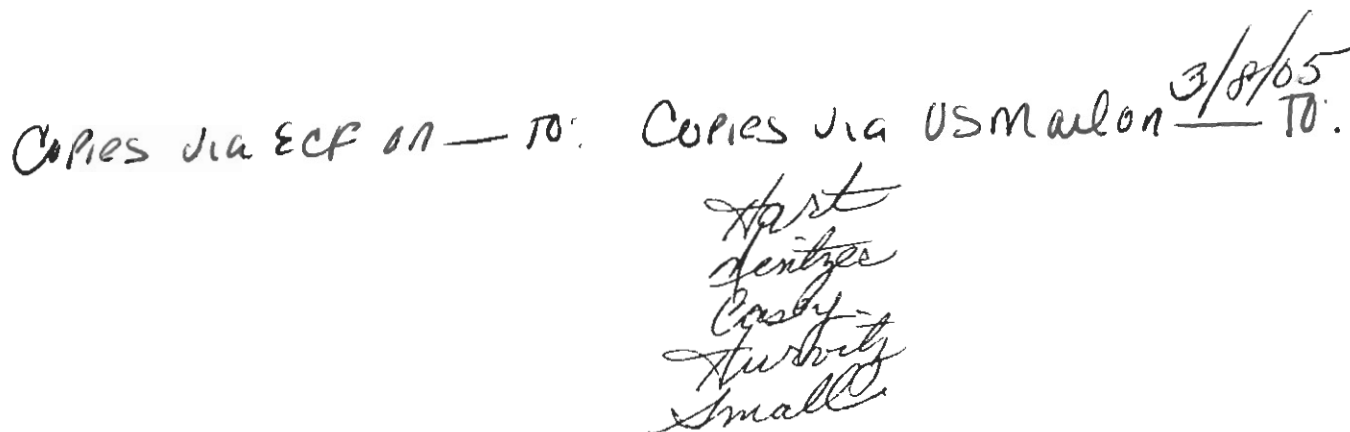 Copies via ECF on — TO: Copies via US Mail on 3/8/05 TO:
Hart
Hurvitz
Small